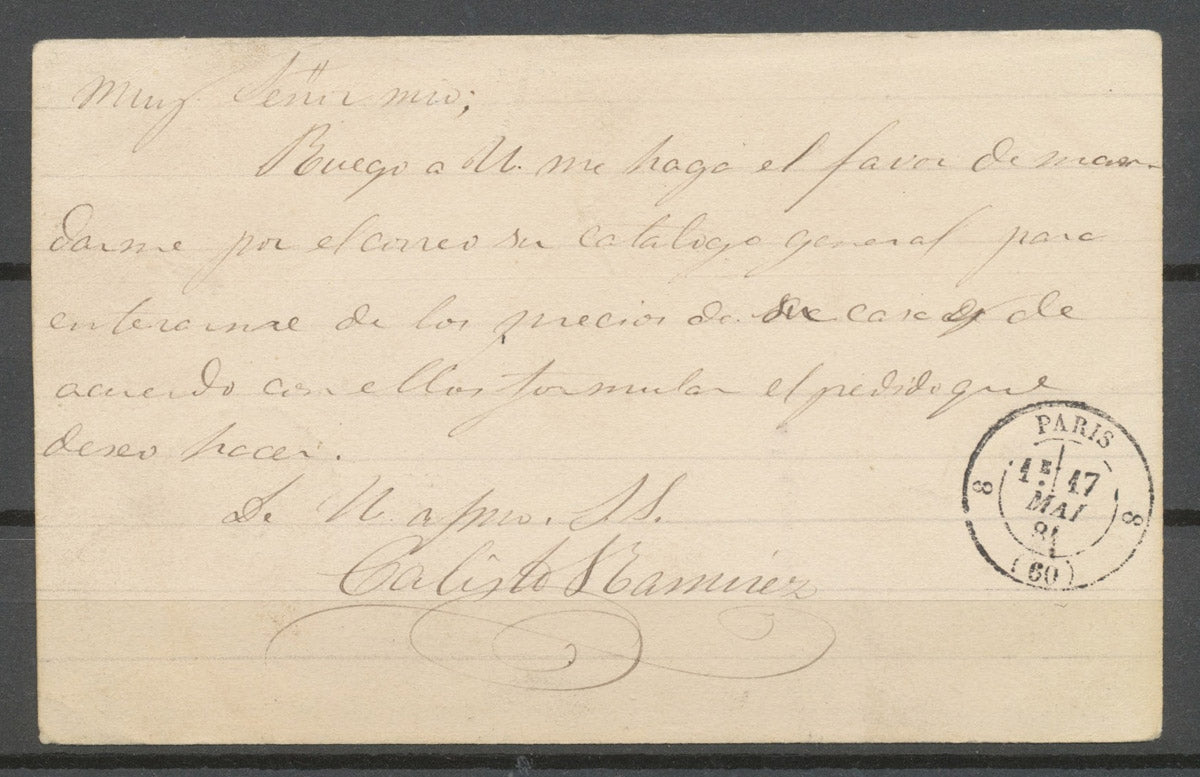 Muy Señor mio;
Ruego a U. me haga el favor de man-
darme por el correo su catalogo general para
enterarme de los precios de su casa y de
acuerdo con ellos formular el pedido que
deseo hacer.
De U. afmo. S. S.
Calisto Ramirez
PARIS
1E 17
MAI
81
8 8
(60)